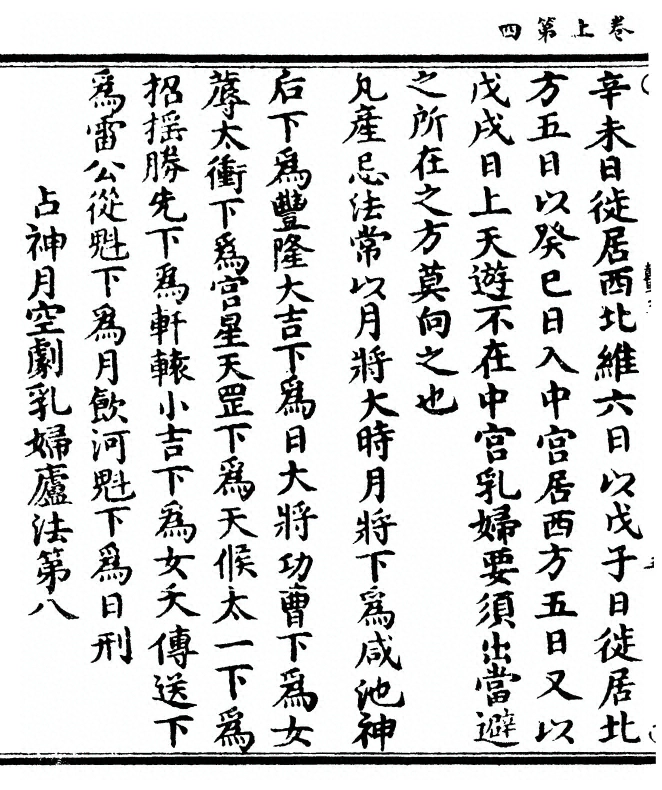 卷上第四
辛未日徙居西北維六日以戊子日徙居北
方五日以癸巳日入中宮居西方五日又以
戊戌日上天遊不在中宮乳婦要須出當避
之所在之方莫向之也
凡產忌法常以月將大時月將下為咸池神
后下為豐隆大吉下為日大將功曹下為女
蓐太衝下為宮星天罡下為天候太一下為
招搖勝先下為軒轅小吉下為女夭傳送下
為雷公從魁下為月厭河魁下為日刑
占神月空劇乳婦廬法第八